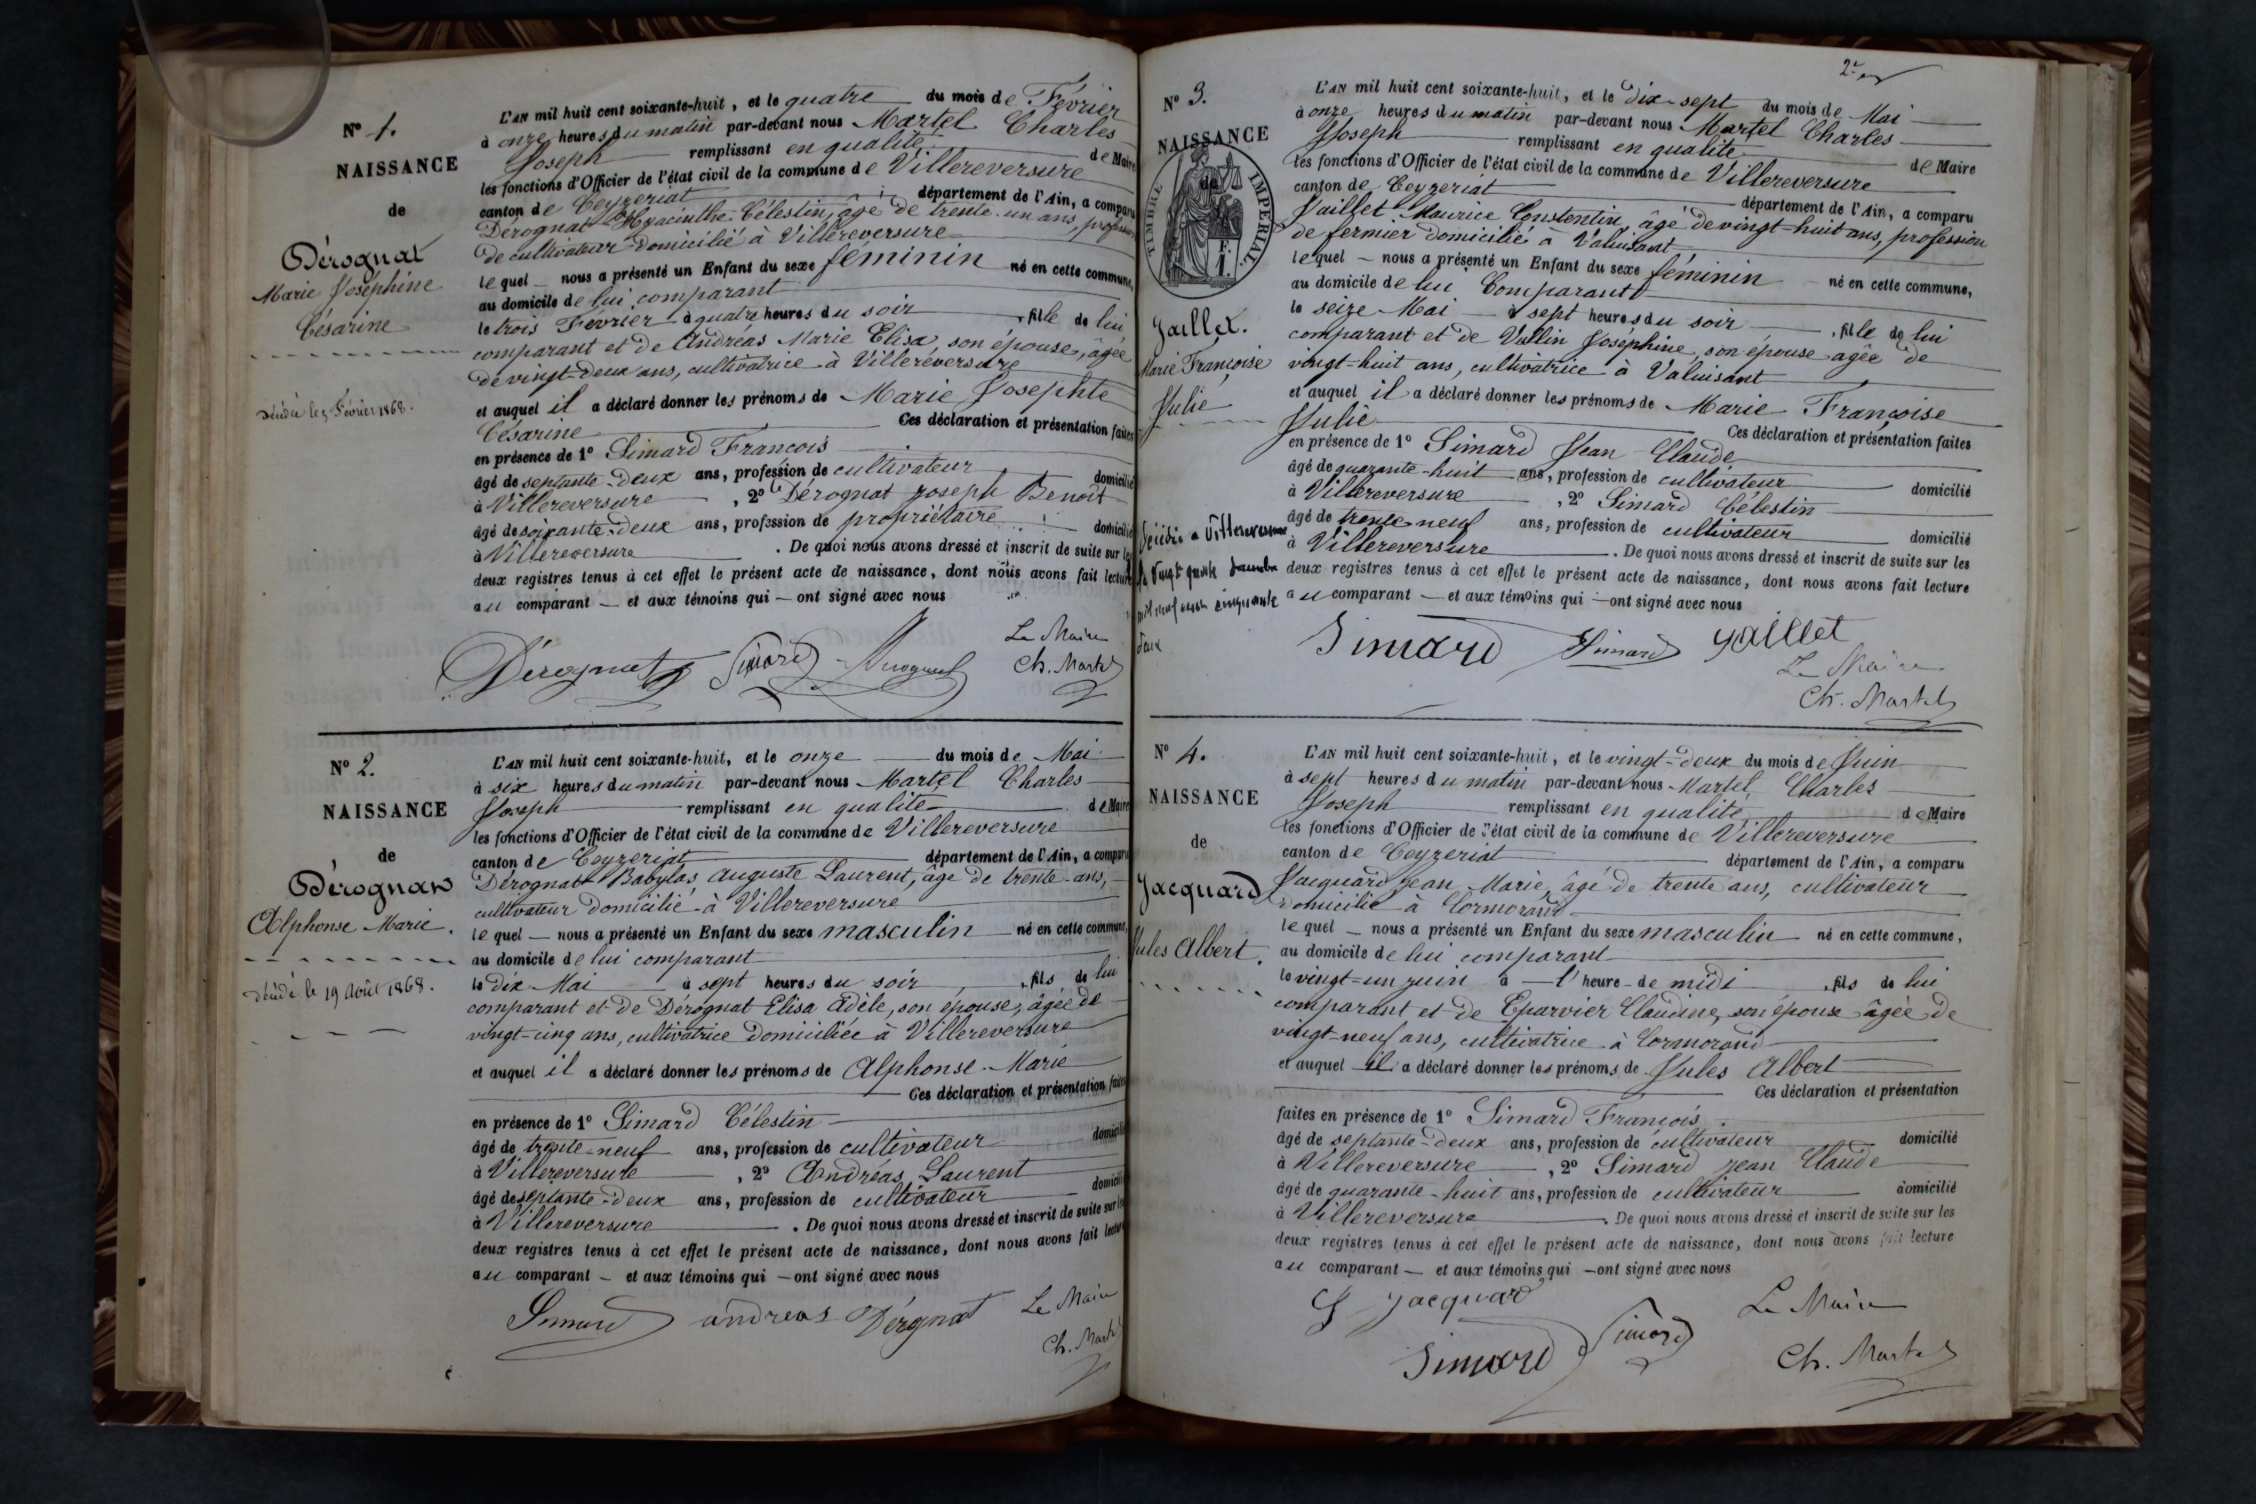 N° 1.
NAISSANCE
de
Dérognat
Marie Joséphine
Césarine
Décédée le 5 Février 1868.
L'AN mil huit cent soixante-huit, et le quatre du mois de Février
à onze heures du matin par-devant nous Martel Charles
Joseph remplissant en qualité de Maire
les fonctions d'Officier de l'état civil de la commune de Villereversure
canton de Ceyzeriat département de l'Ain, a comparu
Dérognat Hyacinthe Célestin, âgé de trente-un ans, profession
de cultivateur domicilié à Villereversure
lequel nous a présenté un Enfant du sexe féminin né en cette commune,
au domicile de lui comparant
le trois Février à quatre heures du soir, fille de lui
comparant et de Andréas Marie Elisa, son épouse, âgée
de vingt-deux ans, cultivatrice à Villereversure
et auquel il a déclaré donner les prénoms de Marie Josephte
Césarine Ces déclaration et présentation faites
en présence de 1° Simard François
âgé de septante-deux ans, profession de cultivateur domicilié
à Villereversure, 2° Dérognat Joseph Benoît
âgé de soixante-deux ans, profession de propriétaire domicilié
à Villereversure. De quoi nous avons dressé et inscrit de suite sur les
deux registres tenus à cet effet le présent acte de naissance, dont nous avons fait lecture
au comparant et aux témoins qui ont signé avec nous
Le Maire
Dérognat Simard Dérognat Ch. Martel
N° 2.
NAISSANCE
de
Dérognat
Alphonse Marie.
Décédé le 19 Août 1868.
L'AN mil huit cent soixante-huit, et le onze du mois de Mai
à six heures du matin par-devant nous Martel Charles
Joseph remplissant en qualité de Maire
les fonctions d'Officier de l'état civil de la commune de Villereversure
canton de Ceyzeriat département de l'Ain, a comparu
Dérognat Babylas Auguste Laurent, âgé de trente ans,
cultivateur domicilié à Villereversure
lequel nous a présenté un Enfant du sexe masculin né en cette commune,
au domicile de lui comparant
le dix Mai à sept heures du soir, fils de lui
comparant et de Dérognat Elisa Adèle, son épouse, âgée de
vingt-cinq ans, cultivatrice domiciliée à Villereversure
et auquel il a déclaré donner les prénoms de Alphonse Marie
Ces déclaration et présentation faites
en présence de 1° Simard Célestin
âgé de trente-neuf ans, profession de cultivateur domicilié
à Villereversure, 2° Andréas Laurent
âgé de septante-deux ans, profession de cultivateur domicilié
à Villereversure. De quoi nous avons dressé et inscrit de suite sur les
deux registres tenus à cet effet le présent acte de naissance, dont nous avons fait lecture
au comparant et aux témoins qui ont signé avec nous
Simard andreas Dérognat Le Maire
Ch. Martel
2e
N° 3.
NAISSANCE
de
TIMBRE IMPERIAL
Jaillet.
Marie Françoise
Julie
Décédée à Villereversure
le vingt quatre
mil neuf cent cinquante
deux
L'AN mil huit cent soixante-huit, et le dix-sept du mois de Mai
à onze heures du matin par-devant nous Martel Charles
Joseph remplissant en qualité de Maire
les fonctions d'Officier de l'état civil de la commune de Villereversure
canton de Ceyzeriat département de l'Ain, a comparu
Jaillet Maurice Constentin, âgé de vingt-huit ans, profession
de fermier domicilié à Valuisant
lequel nous a présenté un Enfant du sexe féminin né en cette commune,
au domicile de lui Comparant
le seize Mai à sept heures du soir, fille de lui
comparant et de Vullin Joséphine, son épouse âgée de
vingt-huit ans, cultivatrice à Valuisant
et auquel il a déclaré donner les prénoms de Marie Françoise
Julie Ces déclaration et présentation faites
en présence de 1° Simard Jean Claude
âgé de quarante-huit ans, profession de cultivateur domicilié
à Villereversure, 2° Simard Célestin
âgé de trente-neuf ans, profession de cultivateur domicilié
à Villereversure. De quoi nous avons dressé et inscrit de suite sur les
deux registres tenus à cet effet le présent acte de naissance, dont nous avons fait lecture
au comparant et aux témoins qui ont signé avec nous
Simard Simard Jaillet
Le Maire
Ch. Martel
N° 4.
NAISSANCE
de
Jacquard
Jules Albert.
L'AN mil huit cent soixante-huit, et le vingt-deux du mois de Juin
à sept heures du matin par-devant nous Martel Charles
Joseph remplissant en qualité de Maire
les fonctions d'Officier de l'état civil de la commune de Villereversure
canton de Ceyzeriat département de l'Ain, a comparu
Jacquard Jean Marie, âgé de trente ans, cultivateur
domicilié à Cormorand
lequel nous a présenté un Enfant du sexe masculin né en cette commune,
au domicile de lui comparant
le vingt-un juin à l'heure de midi, fils de lui
comparant et de Eparvier Claudine, son épouse âgée de
vingt-neuf ans, cultivatrice à Cormorand
et auquel il a déclaré donner les prénoms de Jules Albert
Ces déclaration et présentation
faites en présence de 1° Simard François
âgé de septante-deux ans, profession de cultivateur domicilié
à Villereversure, 2° Simard Jean Claude
âgé de quarante-huit ans, profession de cultivateur domicilié
à Villereversure. De quoi nous avons dressé et inscrit de suite sur les
deux registres tenus à cet effet le présent acte de naissance, dont nous avons fait lecture
au comparant et aux témoins qui ont signé avec nous
Jacquard Le Maire
Simard Simard Ch. Martel